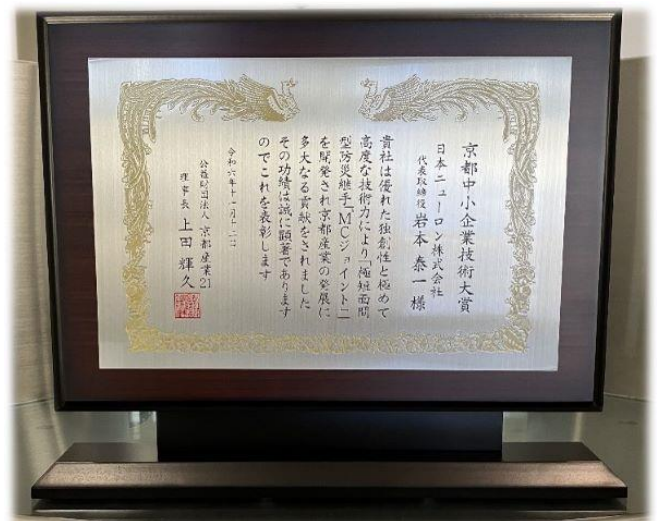 京都中小企業技術大賞
日本ニューロン株式会社
代表取締役 岩本泰一様
貴社は優れた独創性と極めて
高度な技術力により「極短面間
型防災継手「MCジョイント」」
を開発され京都産業の発展に
多大なる貢献をされました
その功績は誠に顕著であります
のでこれを表彰します
令和六年十一月十二日
公益財団法人 京都産業21
理事長 上田輝久